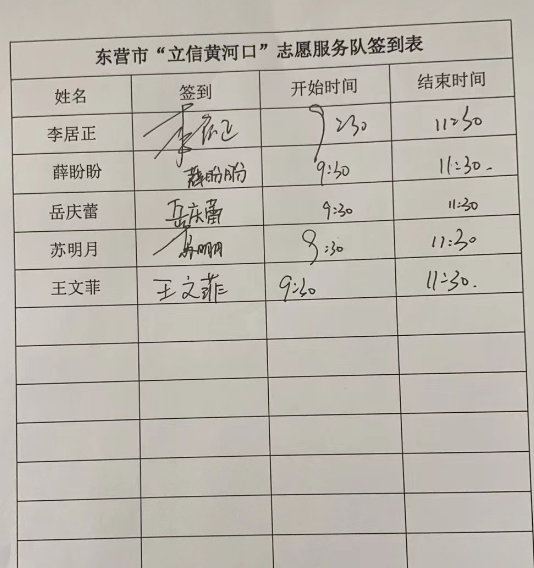 东营市“立信黄河口”志愿服务队签到表
姓名 签到 开始时间 结束时间
李居正 李居正 9:30 11:30
薛盼盼 薛盼盼 9:30 11:30.
岳庆蕾 岳庆蕾 9:30 11:30
苏明月 苏明月 9:30 11:30
王文菲 王文菲 9:30 11:30.